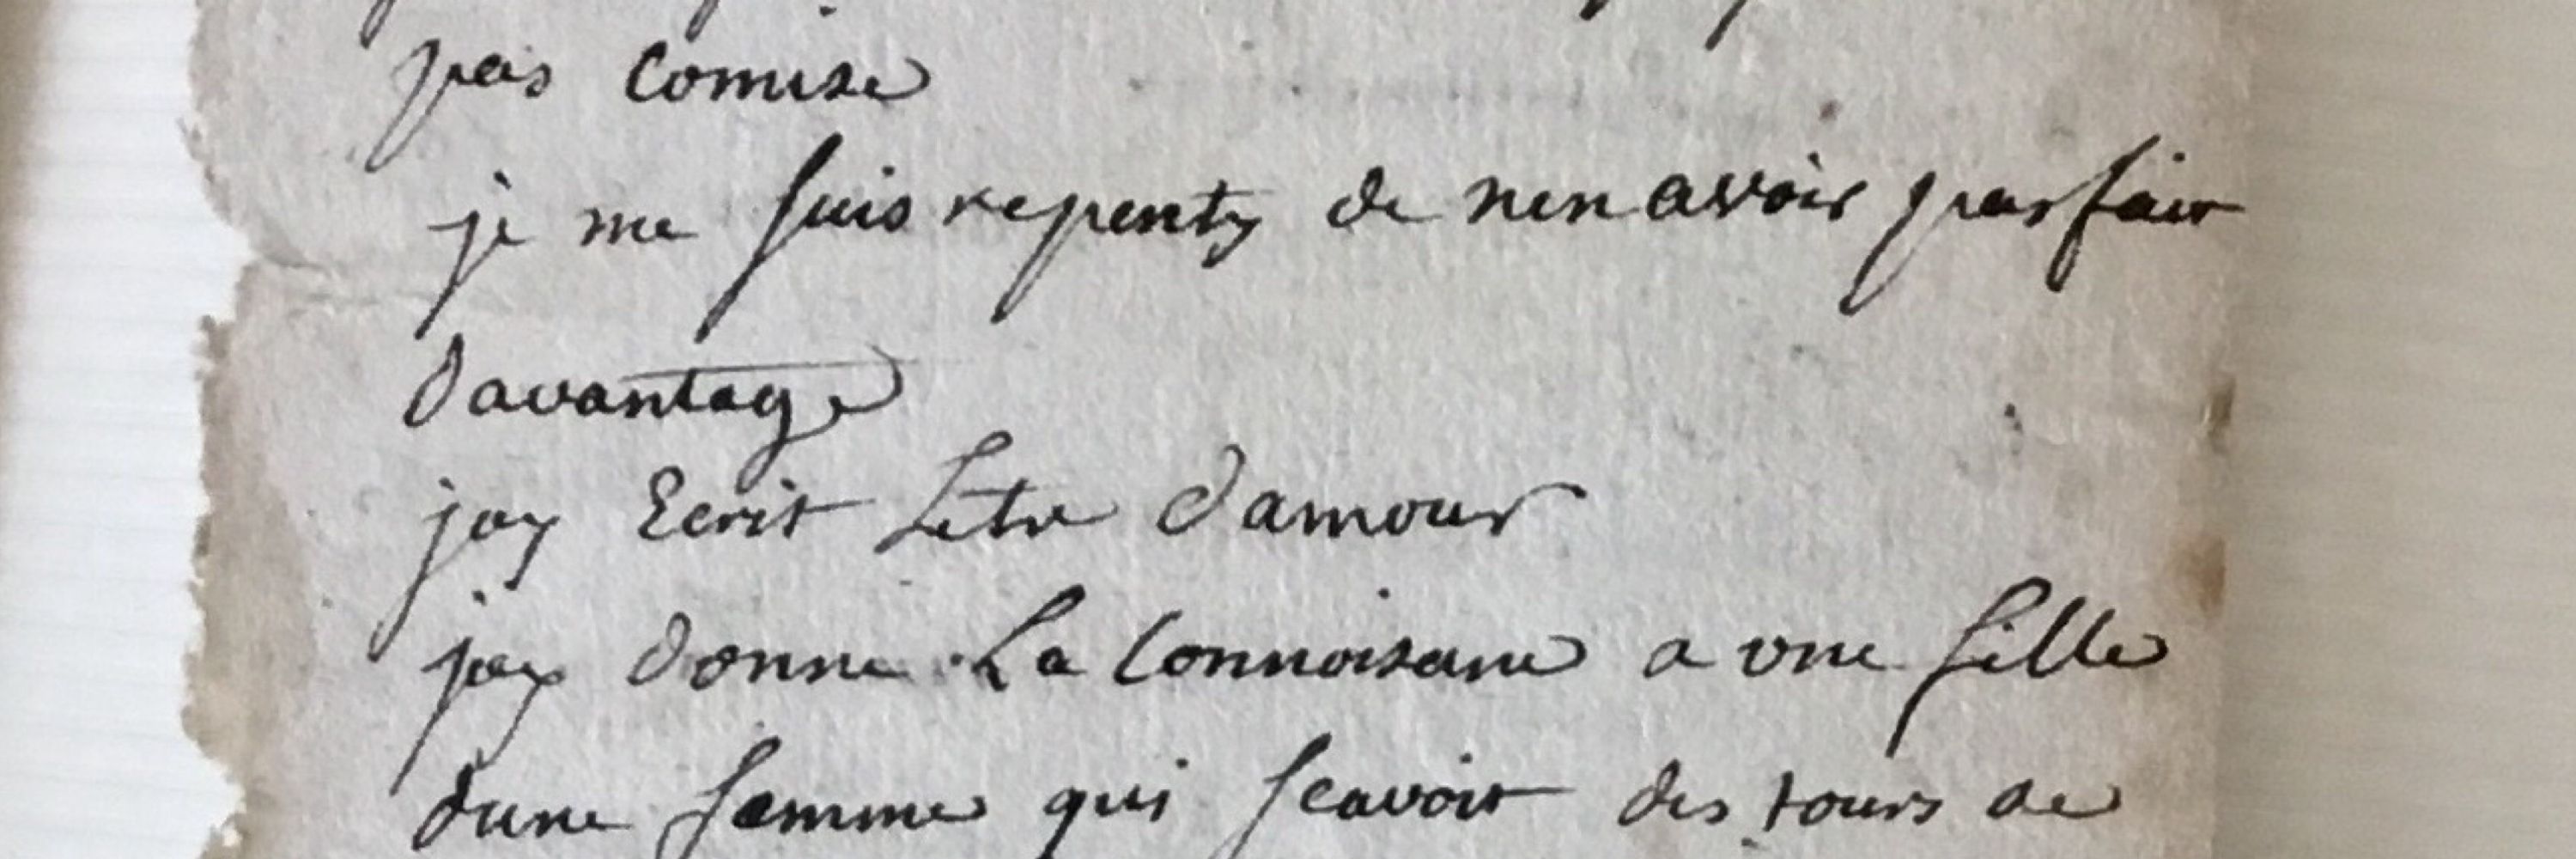 pas comise
je me suis repenty de nen avoir pas fait
davantage
jay Ecrit Letre damour
jay donne La Connoisance a une fille
dune femme qui scavoit des tours de